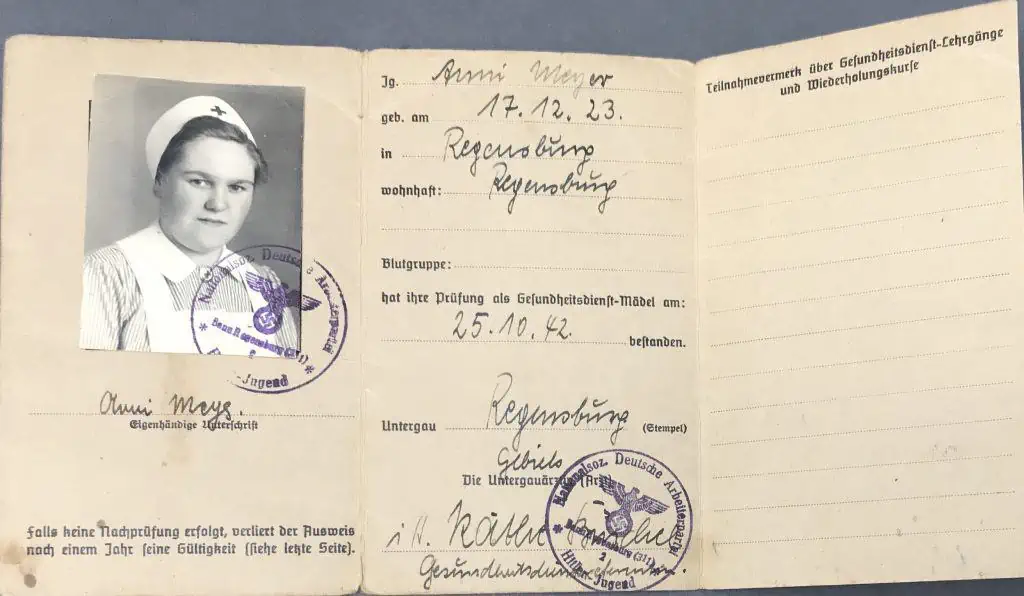 Nationalsoz. Deutsche Arbeiterpartei
Bann Regensburg (311)
2
-Jugend
Anni Mey
Eigenhändige Unterschrift
Falls keine Nachprüfung erfolgt, verliert der Ausweis
nach einem Jahr seine Gültigkeit (siehe letzte Seite).
Jg. Anni Meyer
geb. am 17.12.23.
in Regensburg
wohnhaft: Regensburg
Blutgruppe:
hat ihre Prüfung als Gesundheitsdienst-Mädel am:
25.10.42. bestanden.
Untergau Regensburg (Stempel)
Gebiets
Die Untergauärztin (Arzt)
i.A. Käthe
Nationalsoz. Deutsche Arbeiterpartei
Bann Regensburg (311)
2
Hitler-Jugend
Teilnahmevermerk über Gesundheitsdienst-Lehrgänge
und Wiederholungskurse